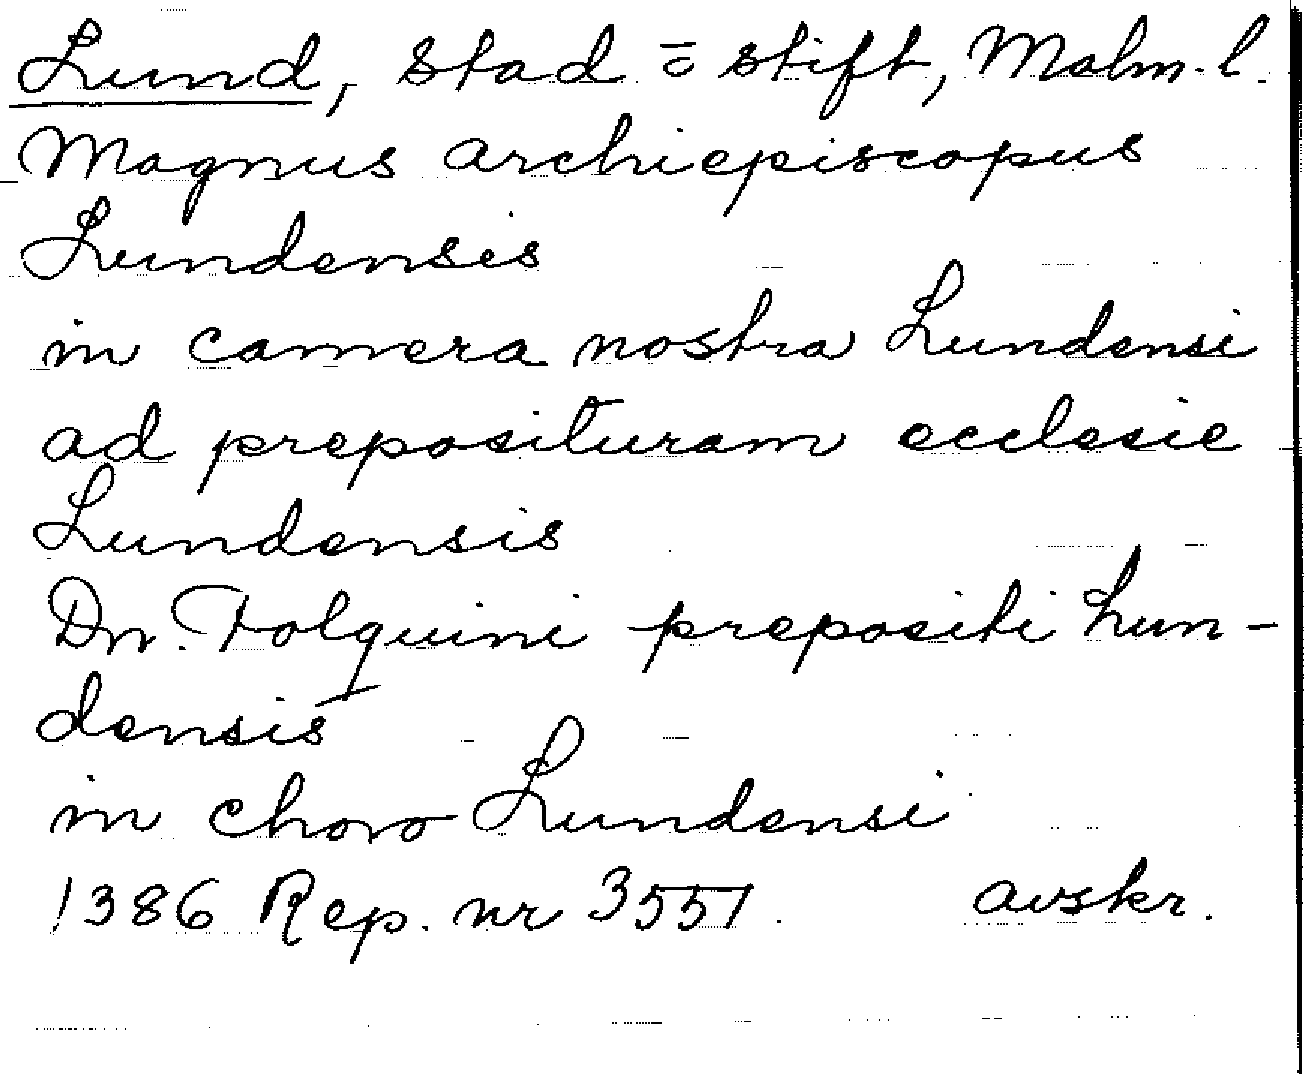 Lund, stad o stift, Malm. l.
Magnus archiepiscopus
Lundensis
in camera nostra Lundensi
ad preposituram ecclesie
Lundensis
Dn. Folquini prepositi Lun-
densis
in choro Lundensi
1386 Rep. nr 3551. avskr.